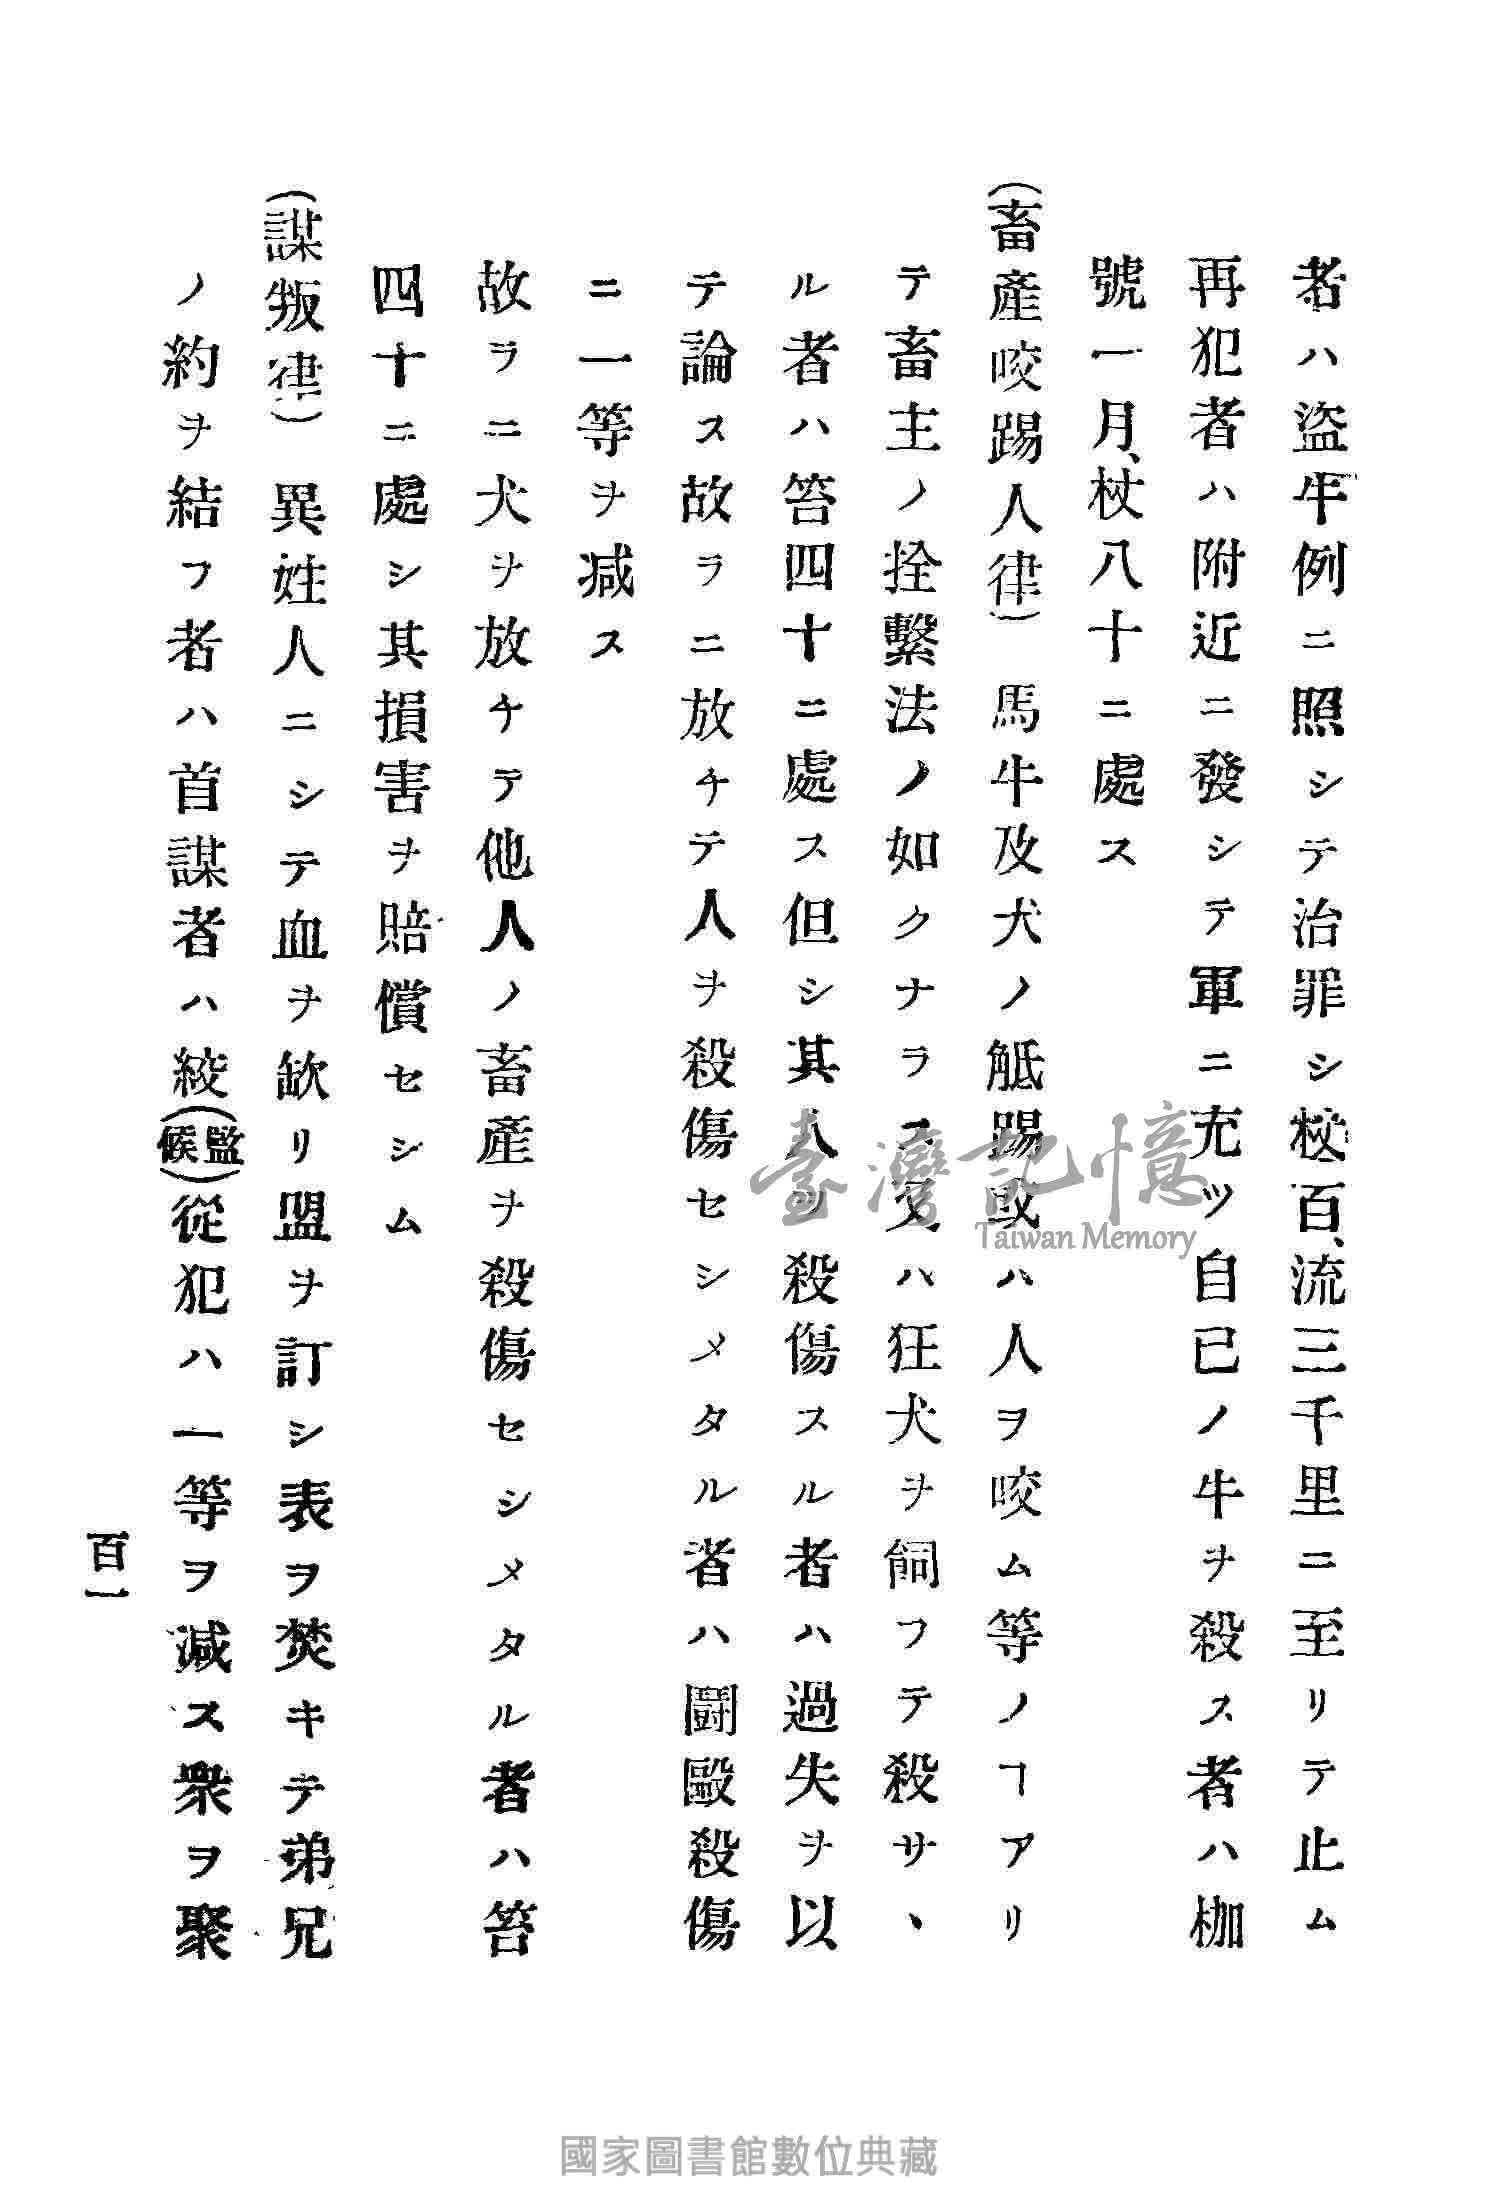 者ハ盜牛例ニ照シテ治罪シ杖百、流三千里ニ至リテ止ム
再犯者ハ附近ニ發シテ軍ニ充ツ自已ノ牛ヲ殺ス者ハ枷
號一月、杖八十ニ處ス
(畜產咬踢人律) 馬牛及犬ノ觝踢或ハ人ヲ咬ム等ノヿアリ
テ畜主ノ拴繫法ノ如クナラス又ハ狂犬ヲ飼フテ殺サヽ
ル者ハ笞四十ニ處ス但シ其人ヲ殺傷スル者ハ過失ヲ以
テ論ス故ラニ放チテ人ヲ殺傷セシメタル者ハ鬪毆殺傷
ニ一等ヲ減ス
故ラニ犬ヲ放チテ他人ノ畜產ヲ殺傷セシメタル者ハ笞
四十ニ處シ其損害ヲ賠償セシム
(謀叛律) 異姓人ニシテ血ヲ歃リ盟ヲ訂シ表ヲ焚キテ弟兄
ノ約ヲ結フ者ハ首謀者ハ絞(監候)從犯ハ一等ヲ減ス衆ヲ聚
百一
臺灣記憶
Taiwan Memory
國家圖書館數位典藏